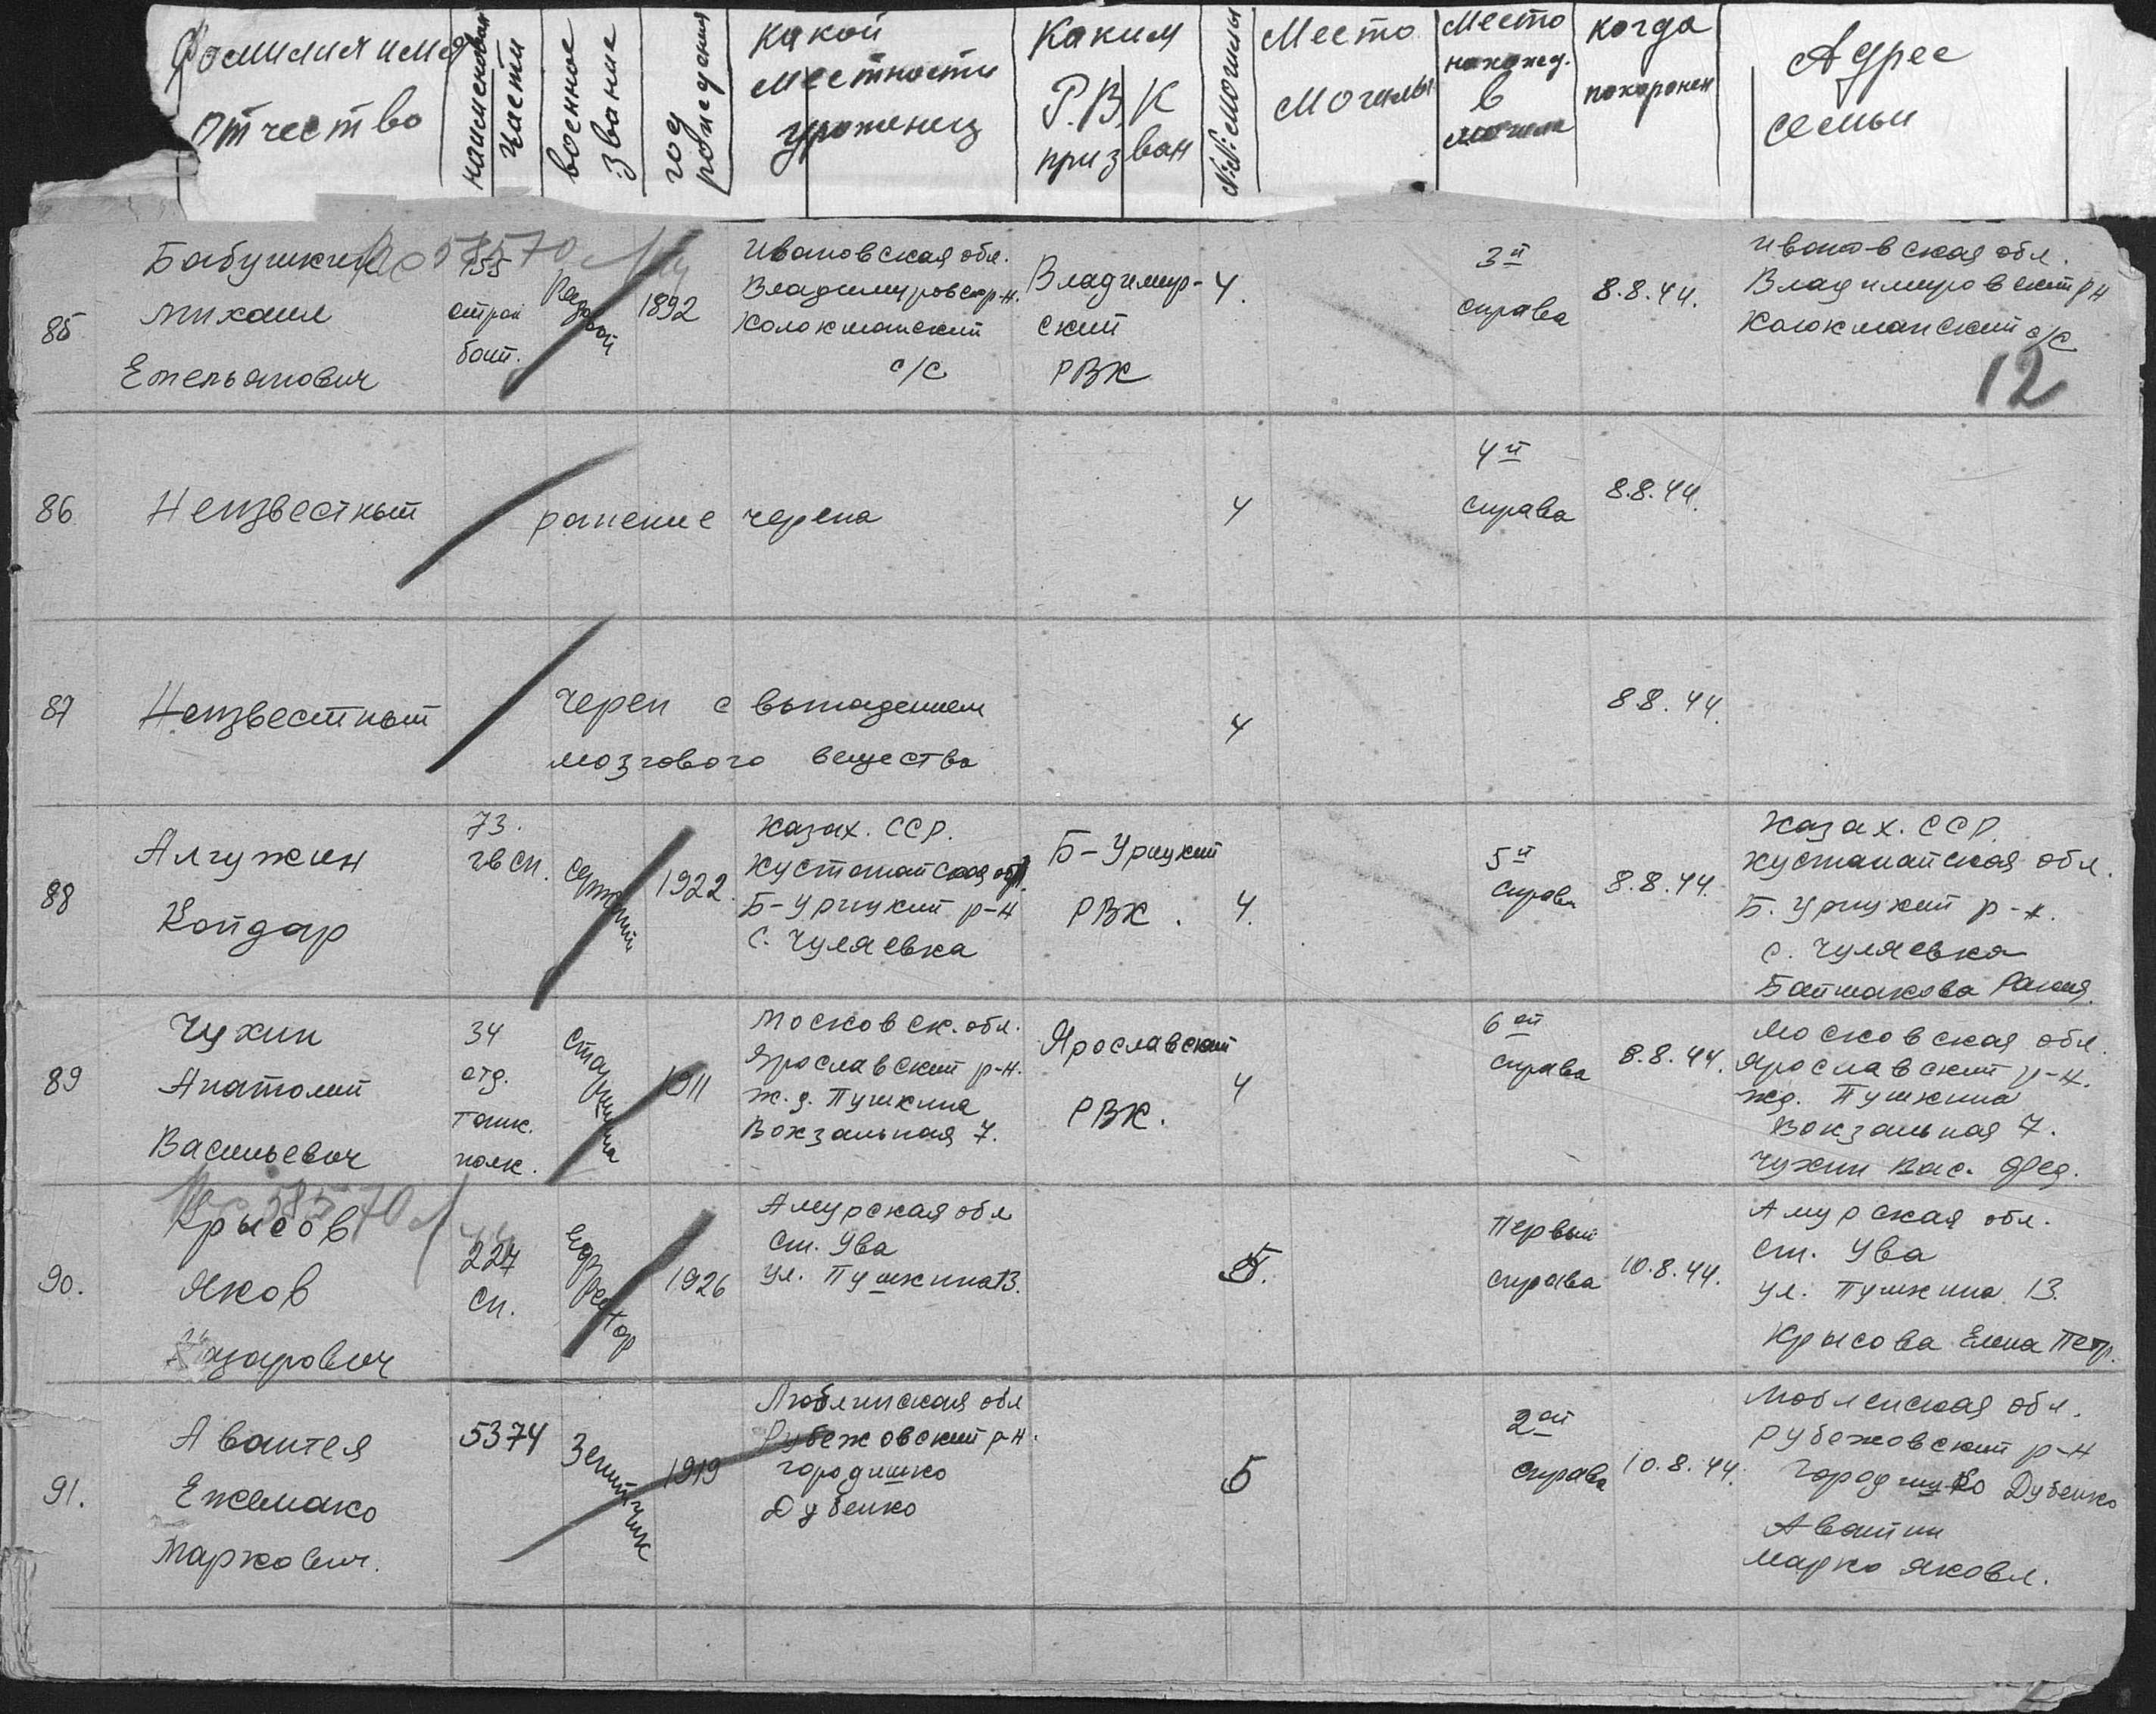 Фамилия имя
отчество
наименован
части
военное
звание
год
рождения
какой
местности
уроженец
Каким
Р.В.К
призван
№№ могилы
Место
могилы
Место
нахожд.
в
могиле
когда
похоронен
Адрес
семьи
85
Бабушкин
Михаил
Емельянович
155
строй
бат.
Рядовой
1892
Ивановская обл.
Владимировск р-н.
Колокшанский
с/с
Владимир-
ский
РВК
4.
3й
справа
8.8.44.
Ивановская обл.
Владимировский р-н
Колокшанский с/с
12
86
Неизвестный
ранение черепа
4
4й
справа
8.8.44.
87
Неизвестный
череп с выпадением
мозгового вещества
4
8.8.44.
88
Алгужин
Койдар
73.
гв сп.
сержант
1922.
Казах. ССР.
Кустанайская обл.
Б-Урицкий р-н
с. Чуляевка
Б-Урицкий
РВК.
4.
5й
справа
8.8.44.
Казах. ССР
Кустанайская обл.
Б. Урицкий р-н.
с. Чуляевка
Баймакова
89
Чухин
Анатолий
Васильевич
34
отд.
танк.
полк.
старшина
1911
Московск. обл.
Ярославский р-н.
ж.д. Пушкина
Вокзальная 7.
Ярославский
РВК.
4
6ой
справа
8.8.44.
Московская обл.
Ярославский р-н.
жд. Пушкина
Вокзальная 7.
Чухин Вас. Фед.
58570
90.
Крысов
Яков
227
сп.
1926
Амурская обл
ст. Ува
ул. Пушкина 13.
5.
Первый
справа
10.8.44.
Амурская обл.
ст. Ува
ул. Пушкина 13.
Крысова Елена Петр.
91.
Авантея
Ежемако
Маркович.
5374
Зенитчик
1919
Люблинская обл
Рубежовский р-н.
городишко
Дубенко
5
2ой
справа
10.8.44.
Люблинская обл.
Рубежовский р-н
городишко Дубенко
Марко Яковл.